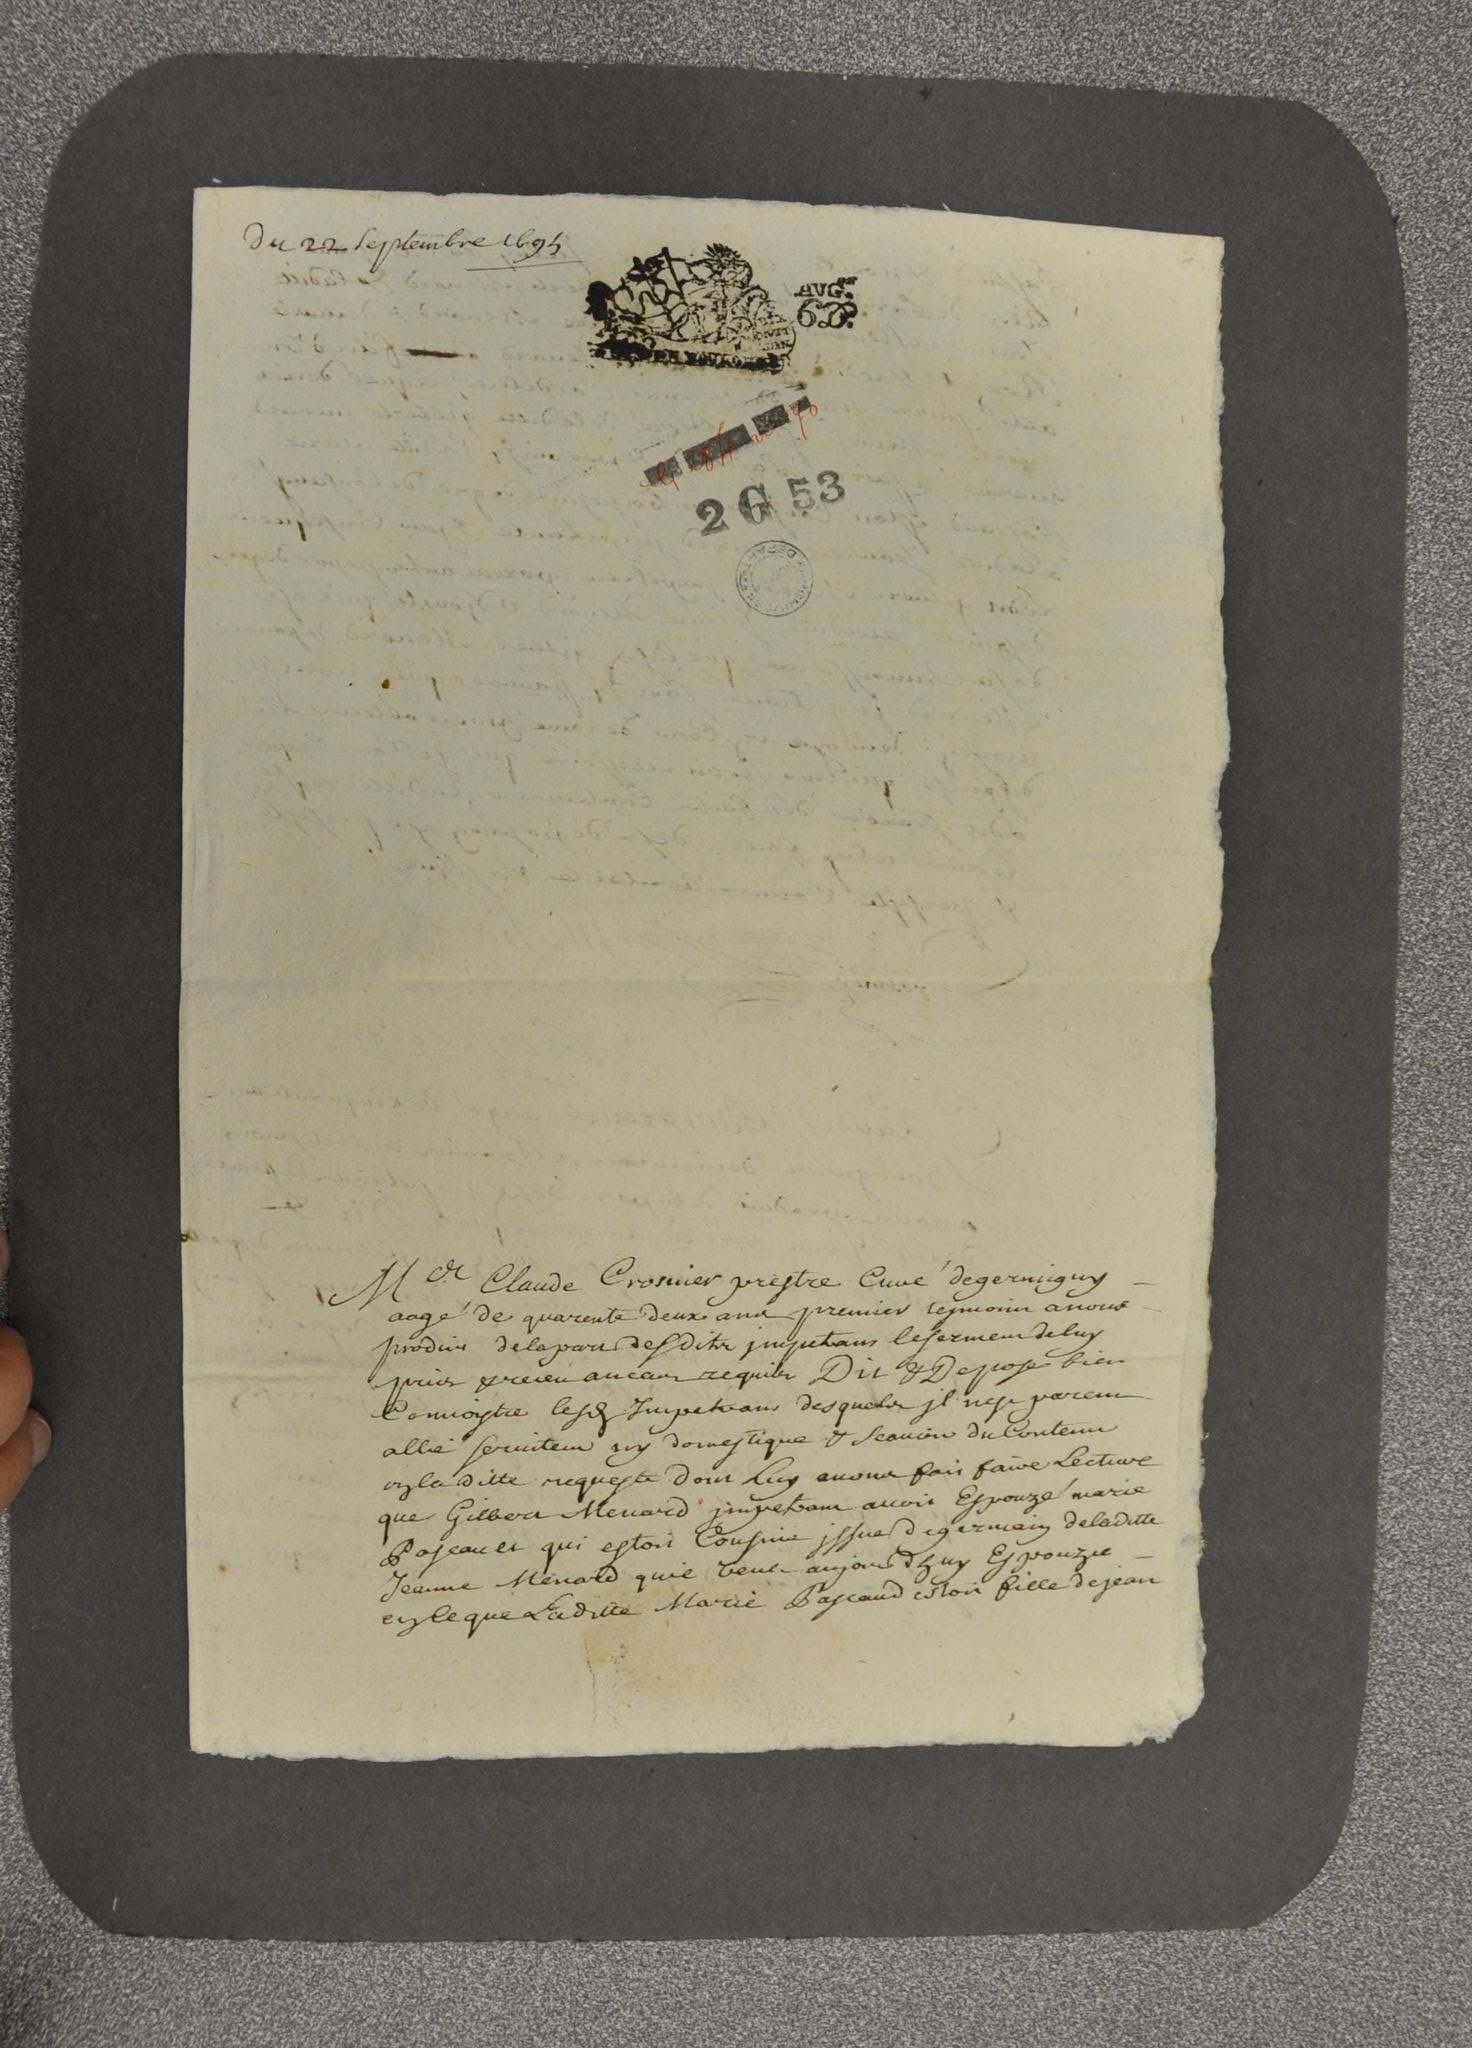 Du 22 Septembre 1695
AUG.on
6 D.
2 G 53
Mre Claude Crosnier prestre Curé degermigny
aagé de quarente deux ans premier tesmoin anous
produit delapart desdits impetrans leserment deluy
pris & receu aucas requis Dit & Depose bien
Connoistre lesd Impetrans desquels jl nest parent
allié serviteur ny domestique & scavoir du Contenu
en ladite requeste dont Luy avons fait faire Lecture
que Gilbert Menard impetrant avoit Espouzé marie
Pascault qui estoit Cousine issue degermain deladitte
Jeanne Menard quil veut aujourdhuy Espouzer
en ce que Laditte Marie Pascaud estoit fille dejean